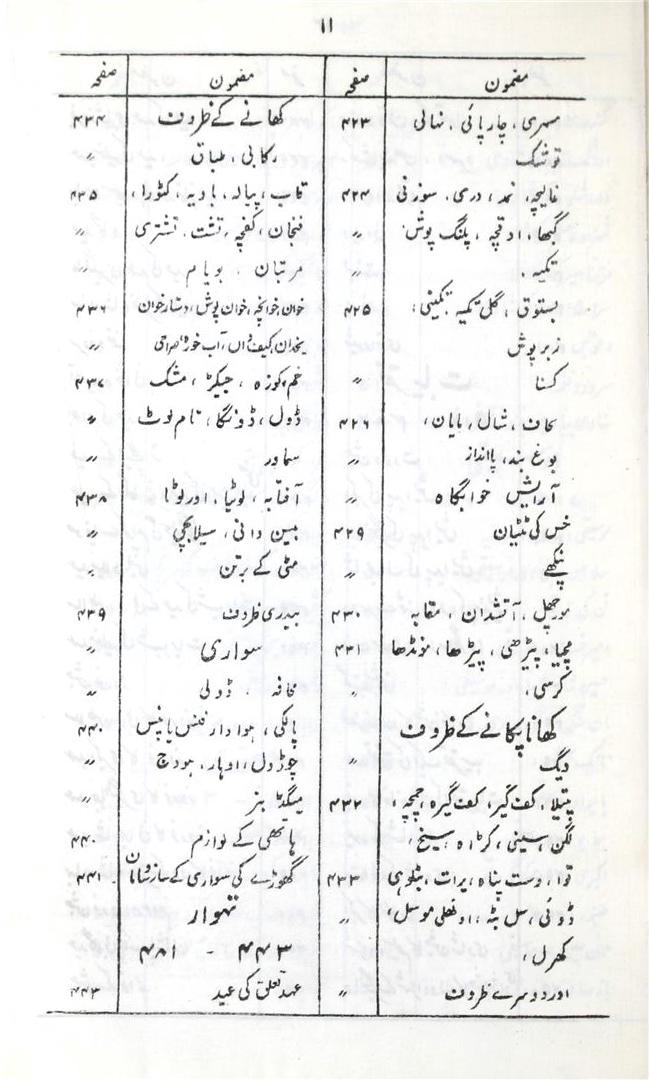 ۱۱
مضمون صفحہ
مسہری، چارپائی، نہالی ۴۲۳
توشک
غالیچہ، نمد، دری، سوزنی ۴۲۴
گبھا، ادقچہ، پلنگ پوش ״
تکیہ،
بستوق، گلی تکیہ تکینی، ۴۲۵
زیرپوش
کسنا ״
لحاف، شال، لپایان، ۴۲۶
بوغ بند، پاانداز ״
آرایش خوابگاہ ״
خس کی ٹٹیان ۴۲۹
پنکھے ״
مورچھل، آتشدان، مقابہ ۴۳۰
مچیا، پیڑھی، پیڑھا، مونڈھا ۴۳۱
کرسی،
کھانا پکانے کے ظروف
دیگ ״
پتیلا، کف گیر، کفت گیرہ، چمچہ ۴۳۲
لگن، سینی، کڑاہ، سیخ،
توا، دست پناہ، پرات، پتلوہی ۴۳۳
ڈوئی، سل بٹہ، اوکھلی موسل، ״
کھرل،
اور دوسرے ظروف ״
مضمون صفحہ
کھانے کے ظروف ۴۳۴
رکابی، طباق ״
قاب، پیالہ، بادیہ، کٹورا، ۴۳۵
فنجان، کفچہ، تشت، تشتری ״
مرتبان، بویام ״
خوان، خوانچہ، خوان پوش، دستارخوان ۴۳۶
یخدان، کیف داں، آب خورہ، صراحی ״
خم، کوزہ، جیکڑ، مشک ۴۳۷
ڈول، ڈونگا، تام لوٹ ״
سماور ״
آفتابہ، لوٹیا، اور لوٹا ۴۳۸
بیسن دانی، سیلابچی ״
مٹی کے برتن ״
بیدری ظروف ۴۳۹
سواری ״
محافہ، ڈولی ״
پالکی، ہوادار فنس پانپس ۴۴۰
چوڈول، اوہار، ہودج ״
میگڈنبر ״
ہاتھی کے لوازم ۴۴۰
گھوڑے کی سواری کے ساز سامان ۴۴۱
تہوار
۴۴۳ - ۴۸۱
عہد تعلق کی عید ۴۴۳